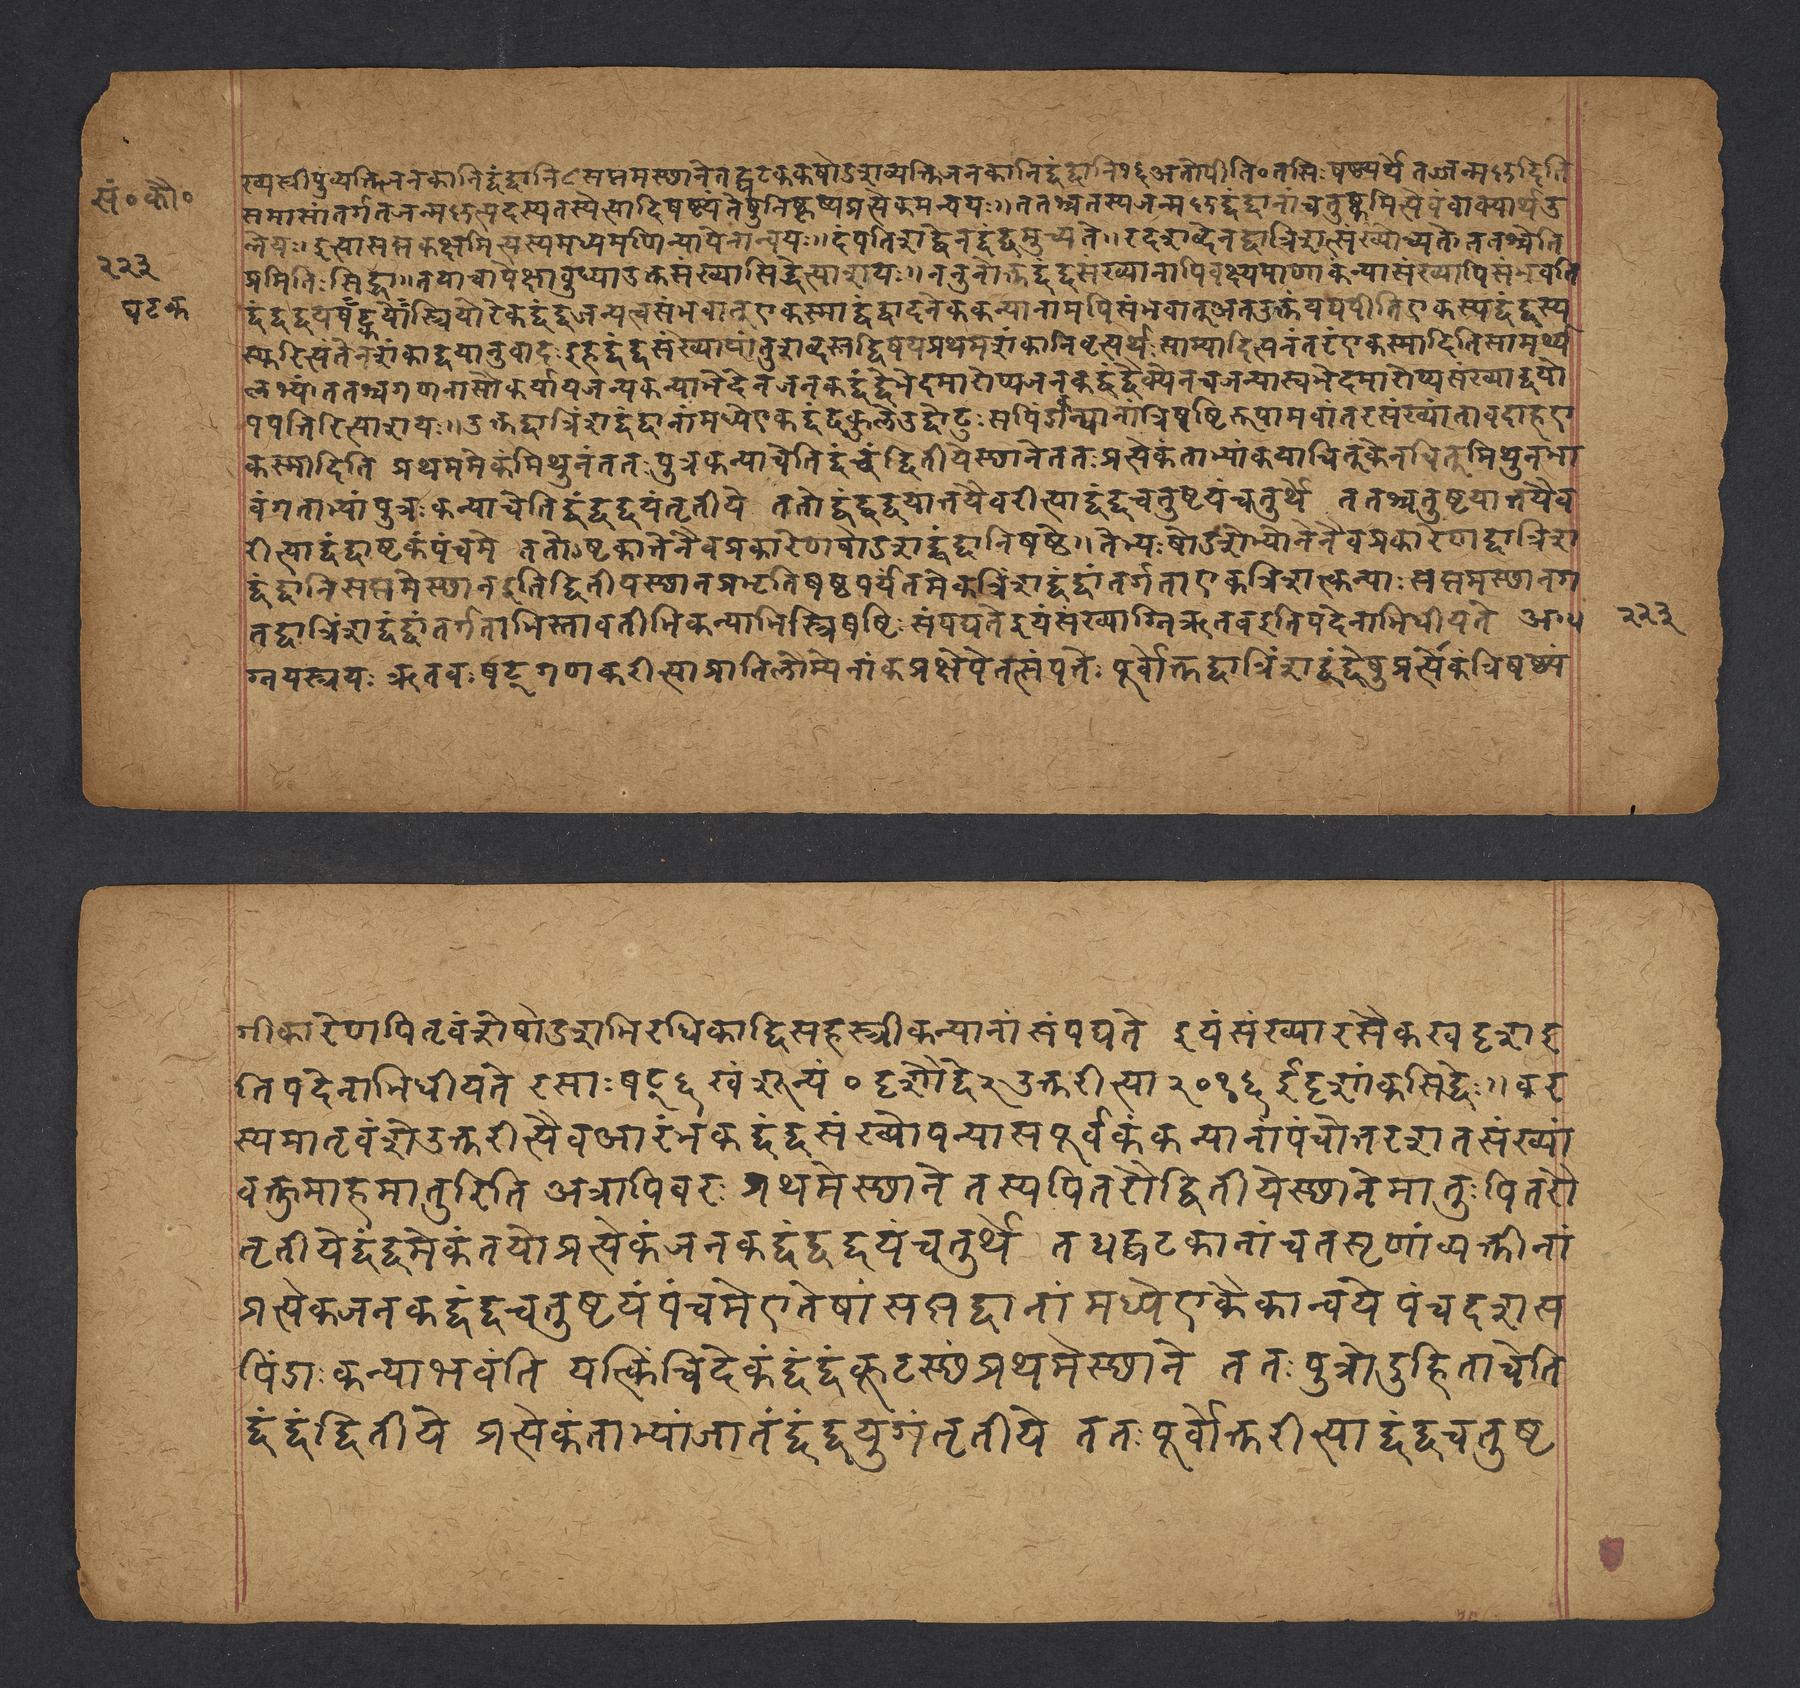 सं॰कौ॰
२२३
घटक
ख्यस्त्रीपुंव्यक्तिजनकानिद्वंद्वानि८सप्तमस्छानेतद्घटकषोडशव्यक्तिजनकानिद्वंद्वानि१६अतोपीति॰तसिःषष्ठ्यर्थेतज्जन्मकृदिति
समासांतर्गतजन्मकृत्पदस्यतस्येत्यादिषष्ठ्यंतेषुनिष्कृष्यप्रत्येकमन्वयः॥ततश्चतस्यजन्मकृद्द्वंद्वानांचतुष्कमित्येवंवाक्यार्थउ
न्नेयः॥इत्यासप्तकक्षमित्यस्यमध्यमणिन्यायेनान्वयः॥दंपतिशब्देनद्वंद्वमुच्यते॥रदशब्देनद्वात्रिंशत्संख्योच्यते ततश्चेति
प्रमितिःसिद्धा॥तयाचापेक्षाबुध्याउक्तसंख्यासिद्धेत्याशयः॥ननुनोक्तद्वंद्वसंख्यानापिवक्ष्यमाणाकन्यासंख्यापिसंभवति
द्वंद्वद्वयषट्कयोस्त्रियोरेकद्वंद्वजन्यत्वसंभवात्एकस्माद्द्वंद्वादनेककन्यानामपिसंभवात्अतउक्तंयद्यपीतिएकस्यद्वंद्वस्य
स्फुरित्यंतेनशंकाद्वयानुवादःइहद्वंद्वसंख्यायांतुशब्दस्तद्विषयप्रथमशंकानिवृत्यर्थःसाम्यादित्यनंतरंएकस्मादितिसामर्थ्य
लभ्यं ततश्चगणनासौकर्यायजन्यकन्याभेदेनजनकद्वंद्वभेदमारोप्यजनकद्वंद्वैक्येनचजन्यास्वभेदमारोप्यसंख्याद्वयो
पपत्तिरित्याशयः॥उक्तद्वात्रिंशद्द्वंद्वानांमध्येएकद्वंद्वकुलेउद्वोढुःसपिंडकन्यानांत्रिषष्टिरूपामवांतरसंख्यांतावदाहए
कस्मादिति प्रथममेकंमिथुनंततःपुत्रकन्याचेतिद्वंद्वंद्वितीयेस्छानेततःप्रत्येकंताभ्यांकयाचित्केनचित्मिथुनभा
वंगताभ्यांपुत्रःकन्याचेतिद्वंद्वद्वयंतृतीये ततोद्वंद्वद्वयात्तयैवरीत्याद्वंद्वचतुष्टयंचतुर्थे ततश्चतुष्टयात्तयैव
रीत्याद्वंद्वाष्टकंपंचमे ततोऽष्टकात्तेनैवप्रकारेणषोडशद्वंद्वानिषष्ठे॥तेभ्यःषोडशभ्योनेनैवप्रकारेणद्वात्रिंश
द्द्वंद्वानिसप्तमेस्छानइतिद्वितीयस्छानप्रभृतिषष्ठपर्यंतमेकत्रिंशद्द्वंद्वांतर्गताएकत्रिंशत्कन्याःसप्तमस्छानग
तद्वात्रिंशद्द्वंद्वांतर्गताभिस्तावतीभिकन्याभिस्त्रिषष्टिःसंपद्यतेइयंसंख्याग्निऋतवइतिपदेनाभिधीयते अ॰५
२२३
ग्नयस्त्रयःऋतवःषट्गणकरीत्याप्रातिलोम्येनांकप्रक्षेपेतत्संपतेःपूर्वोक्तद्वात्रिंशद्द्वंद्वेषुप्रत्येकंत्रिषष्ठ्यं
गीकारेणपितृवंशेषोडशभिरधिकाद्विसहस्त्रीकन्यानांसंपद्यते इयंसंख्यारसैकखदृशइ
तिपदेनाभिधीयते रसाःषट्६खंशून्यं०दृशौद्वे२उक्तरीत्या२०१६ईदृशांकसिद्धेः॥कर
स्यमातृवंशेउक्तरीत्यैवआरंभकद्वंद्वसंख्योपन्यासपूर्वकंकन्यानांपंचोत्तरशतसंख्यां
वक्तुमाहमातुरिति अत्रापिवरःप्रथमेस्छाने तस्यपितरौद्वितीयेस्छानेमातुःपितरौ
तृतीयेद्वंद्वमेकंतयोःप्रत्येकंजनकद्वंद्वद्वयंचतुर्थे तद्घटकानांचतसृणांव्यक्तीनां
प्रत्येकजनकद्वंद्वचतुष्टयंपंचमेएतेषांसप्तद्वानांमध्येएकैकान्वये पंचदशस
पिंडाःकन्याभवंति यत्किंचिदेकंद्वंद्वंकूटस्छंप्रथमेस्छाने ततःपुत्रोदुहिताचेति
द्वंद्वंद्वितीये प्रत्येकंताभ्यांजातंद्वंद्वयुगंतृतीये ततःपूर्वोक्तरीत्याद्वंद्वचतुष्ट